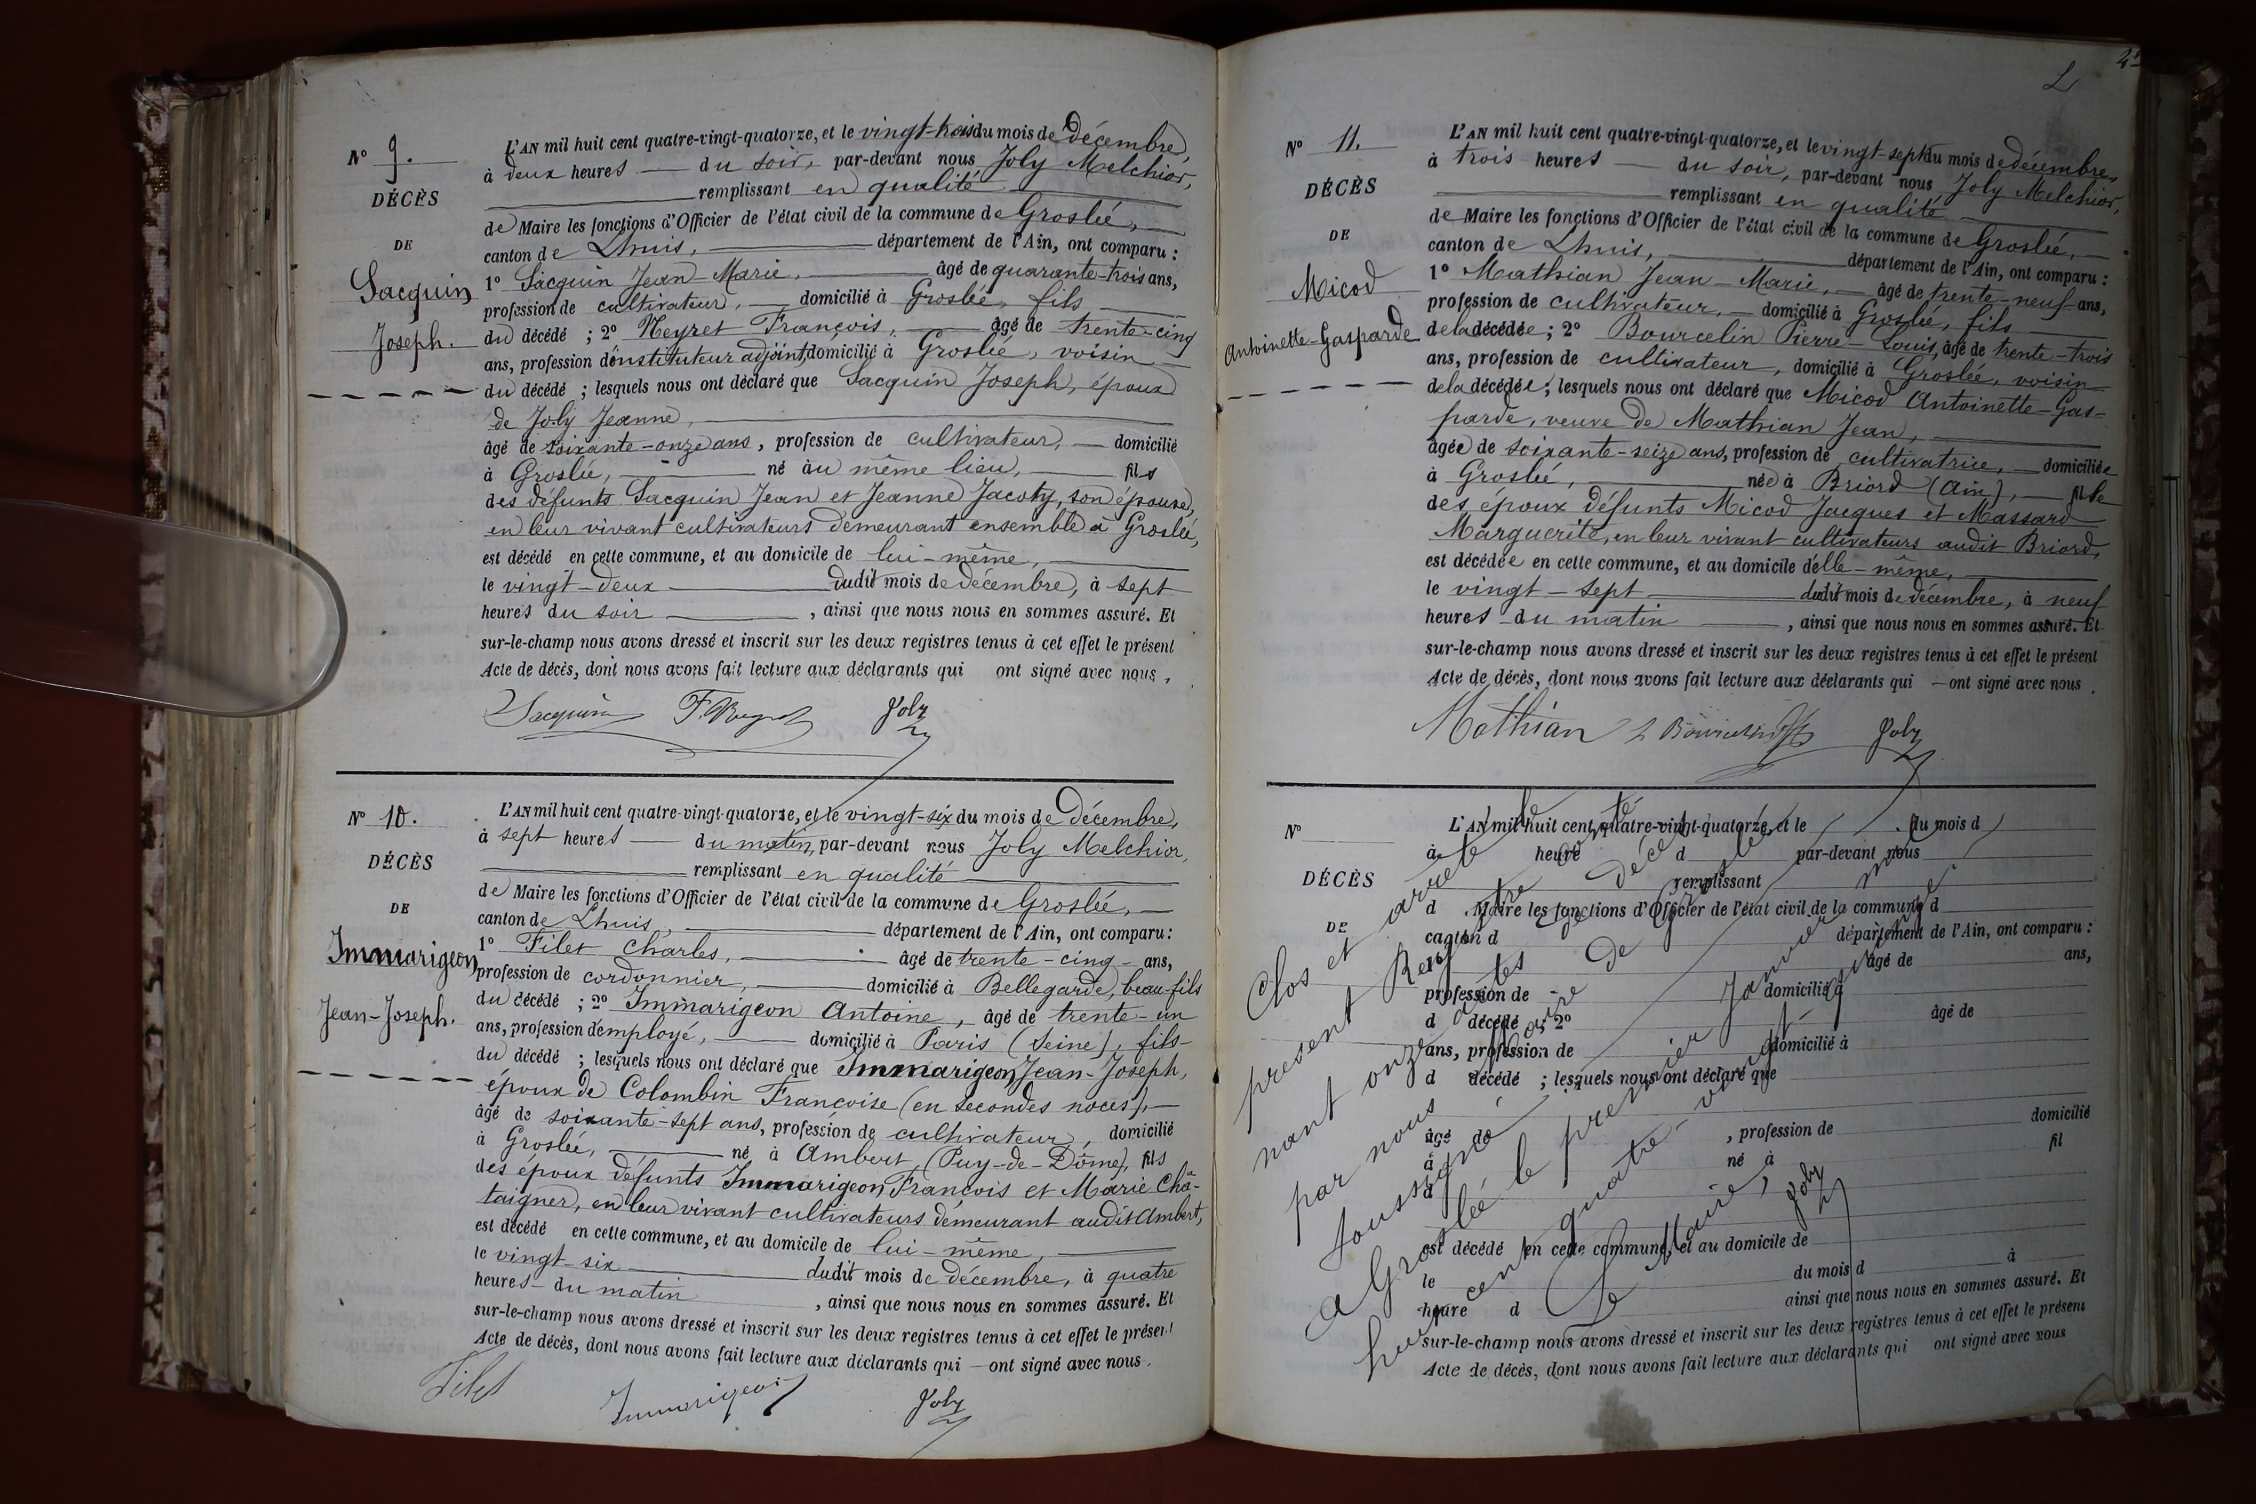 Nº 9.
DÉCÈS
DE
Sacquin
Joseph.
L'AN mil huit cent quatre-vingt-quatorze, et le vingt-trois du mois de décembre,
à deux heures du soir, par-devant nous Joly Melchior,
remplissant en qualité
de Maire les fonctions d'Officier de l'état civil de la commune de Groslée,
canton de Lhuis, département de l'Ain, ont comparu :
1º Sacquin Jean Marie, âgé de quarante-trois ans,
profession de cultivateur, domicilié à Groslée, fils
du décédé ; 2º Neyret François, âgé de trente-cinq
ans, profession d'instituteur adjoint, domicilié à Groslée, voisin
du décédé ; lesquels nous ont déclaré que Sacquin Joseph, époux
de Joly Jeanne,
âgé de soixante-onze ans, profession de cultivateur, domicilié
à Groslée, né au même lieu, fils
des défunts Sacquin Jean et Jeanne Jacoty, son épouse,
en leur vivant cultivateurs demeurant ensemble à Groslée,
est décédé en cette commune, et au domicile de lui-même,
le vingt-deux dudit mois de décembre, à sept
heures du soir, ainsi que nous nous en sommes assuré. Et
sur-le-champ nous avons dressé et inscrit sur les deux registres tenus à cet effet le présent
Acte de décès, dont nous avons fait lecture aux déclarants qui ont signé avec nous.
Sacquin F. Neyret Joly
Nº 10.
DÉCÈS
DE
Immarigeon
Jean-Joseph.
L'AN mil huit cent quatre-vingt-quatorze, et le vingt-six du mois de décembre,
à sept heures du matin, par-devant nous Joly Melchior,
remplissant en qualité
de Maire les fonctions d'Officier de l'état civil de la commune de Groslée,
canton de Lhuis, département de l'Ain, ont comparu :
1º Filet Charles, âgé de trente-cinq ans,
profession de cordonnier, domicilié à Bellegarde, beau-fils
du décédé ; 2º Immarigeon Antoine, âgé de trente-un
ans, profession d'employé, domicilié à Paris (Seine), fils
du décédé ; lesquels nous ont déclaré que Immarigeon Jean-Joseph,
époux de Colombin Françoise (en secondes noces),
âgé de soixante-sept ans, profession de cultivateur, domicilié
à Groslée, né à Ambert (Puy-de-Dôme), fils
des époux défunts Immarigeon François et Marie Châ-
taigner, en leur vivant cultivateurs demeurant audit Ambert,
est décédé en cette commune, et au domicile de lui-même,
le vingt-six dudit mois de décembre, à quatre
heures du matin, ainsi que nous nous en sommes assuré. Et
sur-le-champ nous avons dressé et inscrit sur les deux registres tenus à cet effet le présent
Acte de décès, dont nous avons fait lecture aux déclarants qui ont signé avec nous.
Filet Immarigeon Joly
Nº 11.
DÉCÈS
DE
Micod
Antoinette-Gasparde
L'AN mil huit cent quatre-vingt-quatorze, et le vingt-sept du mois de décembre,
à trois heures du soir, par-devant nous Joly Melchior,
remplissant en qualité
de Maire les fonctions d'Officier de l'état civil de la commune de Groslée,
canton de Lhuis, département de l'Ain, ont comparu :
1º Mathian Jean-Marie, âgé de trente-neuf ans,
profession de cultivateur, domicilié à Groslée, fils
de la décédée ; 2º Bourcelin Pierre-Louis, âgé de trente-trois
ans, profession de cultivateur, domicilié à Groslée, voisin
de la décédée ; lesquels nous ont déclaré que Micod Antoinette-Gas-
parde, veuve de Mathian Jean,
âgée de soixante-seize ans, profession de cultivatrice, domiciliée
à Groslée, née à Briord (Ain), fille
des époux défunts Micod Jacques et Massard
Marguerite, en leur vivant cultivateurs audit Briord,
est décédée en cette commune, et au domicile d'elle-même,
le vingt-sept dudit mois de décembre, à neuf
heures du matin, ainsi que nous nous en sommes assuré. Et
sur-le-champ nous avons dressé et inscrit sur les deux registres tenus à cet effet le présent
Acte de décès, dont nous avons fait lecture aux déclarants qui ont signé avec nous.
Mathian L Bourcelin Joly
Nº
DÉCÈS
DE
L'AN mil huit cent quatre-vingt-quatorze, et le du mois d
à heure d par-devant nous
remplissant
d Maire les fonctions d'Officier de l'état civil de la commune d
canton d département de l'Ain, ont comparu :
1º âgé de ans,
profession de domicilié à
d décédé ; 2º âgé de
ans, profession de domicilié à
d décédé ; lesquels nous ont déclaré que
âgé de , profession de domicilié
à né à fil
d
est décédé en cette commune, et au domicile de
le du mois d à
heure d ainsi que nous nous en sommes assuré. Et
sur-le-champ nous avons dressé et inscrit sur les deux registres tenus à cet effet le présent
Acte de décès, dont nous avons fait lecture aux déclarants qui ont signé avec nous
Clos et arrêté le
présent Registre conte
nant onze actes de décès
par nous Maire de Groslée
soussigné
à Groslée le premier Janvier mil
huit cent quatre-vingt-quinze.
Le Maire,
Joly